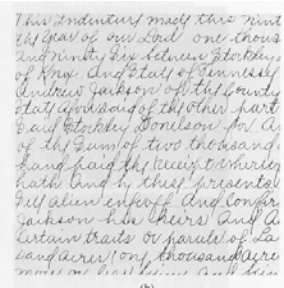 This Indenture made this nint
the year of our Lord one thous
and ninety six between Stockley
of Knox And State of Tennessee
Andrew Jackson of the County
State aforesaid of the other part
Said Stockley Donelson for A
of the Sum of two thousand
hand paid the receipt wherein
hath And by these presents
Sell alien enfeoff And Confir
Jackson his heirs And A
Certain traits or parcels of La
sand acres (one thousand acre
(b)